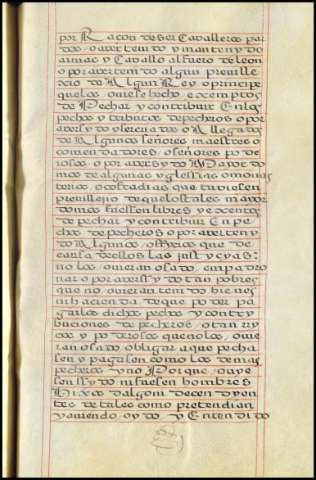 por Raçon de ser Caballeros par
dos o aver tenido y mantenydo
armas y Caballo al fuero de leon
o por aver tenido algun preville
xio de Algun Rey o principe
que los oviese hecho exemptos
de Pechar y contribuir En los
pechos y tributos de pecheros o por
aver sydo y serenados o Allegados
de Algunos señores maestres o
comendadores o señores po de
rosos o por aver sydo Mayordo
mos de algunas yglesias o monas
terios o cofadias que tuviesen
previllejio de que los tales mayor
domos fuesen libres y exentos
de pechar y contribuir En pe
chos de pecheros o por aver teny
do Algunos offycios que de
causa dellos las justycyas
no los ovieran osado empadro
nar o por aver sydo tan pobres
que no ovieran tenido bienes
ni hacienda de que poder pa
gar los dichos pechos y contry
buciones de pecheros o tan rry
cos y poderosos que no los ovie
ran osado obligar a que pecha
sen y pagasen como los demas
pecheros y no Porque oviese
sen sydo ni fuesen hombres
Hixos dalgo ni decendyen
tes de tales como pretendian
y aviendo oydo y Entendido